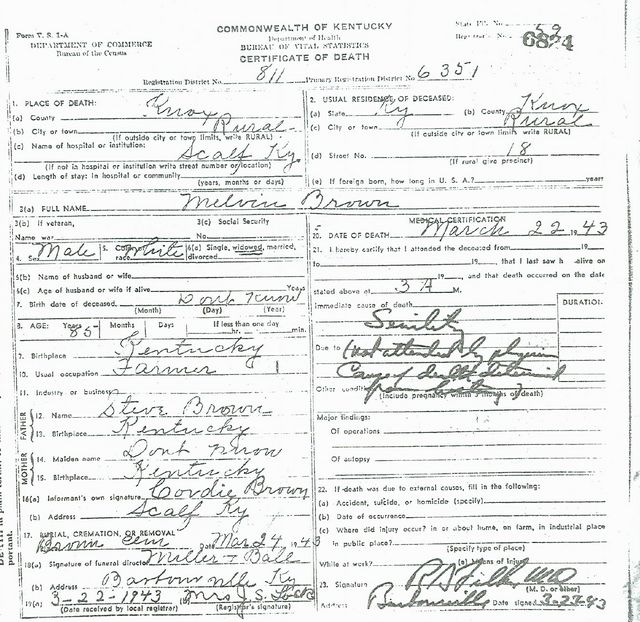 Form V. S. 1-A
DEPARTMENT OF COMMERCE
Bureau of the Census
COMMONWEALTH OF KENTUCKY
Department of Health
BUREAU OF VITAL STATISTICS
CERTIFICATE OF DEATH
State File No.
Registrar's No. 59
6874
Registration District No. 811 Primary Registration District No. 6351
1. PLACE OF DEATH:
(a) County Knox
(b) City or town Rural
(If outside city or town limits, write RURAL)
(c) Name of hospital or institution:
Scalf Ky
(If not in hospital or institution write street number or location)
(d) Length of stay: In hospital or community
(years, months or days)
2. USUAL RESIDENCE OF DECEASED:
(a) State Ky (b) County Knox
(c) City or town Rural
(If outside city or town limits write RURAL)
(d) Street No. 18
(If rural give precinct)
(e) If foreign born, how long in U. S. A.? years
3(a) FULL NAME Melvin Brown
3(b) If veteran,
Name war
3(c) Social Security
No.
4. Sex Male 5. Color or race White 6(a) Single, widowed, married, divorced
6(b) Name of husband or wife
6(c) Age of husband or wife if alive Years
7. Birth date of deceased Dont Know
(Month) (Day) (Year)
8. AGE: Years 85 Months Days If less than one day
hr. min.
9. Birthplace Kentucky
10. Usual occupation Farmer
11. Industry or business
FATHER
12. Name Steve Brown
13. Birthplace Kentucky
MOTHER
14. Maiden name Dont Know
15. Birthplace Kentucky
16(a) Informant's own signature Cordie Brown
(b) Address Scalf Ky
17. BURIAL, CREMATION, OR REMOVAL
Brown Cem Date Mar 24, 1943
18(a) Signature of funeral director Miller-Ball
(b) Address Barbourville Ky
19(a) 3-22-1943 (b) Mrs J. S. Lock
(Date received by local registrar) (Registrar's signature)
MEDICAL CERTIFICATION
20. DATE OF DEATH March 22 1943
21. I hereby certify that I attended the deceased from 19
to 19 , that I last saw h alive on
19 , and that death occurred on the date
stated above at 3 A M.
Immediate cause of death
DURATION
Senility
Due to (Not attended by physician
Cause of death determined
Other conditions
(Include pregnancy within 3 months of death)
Major findings:
Of operations
Of autopsy
22. If death was due to external causes, fill in the following:
(a) Accident, suicide, or homicide (specify)
(b) Date of occurrence
(c) Where did injury occur? in or about home, on farm, in industrial place
in public place?
(Specify type of place)
While at work? (e) Means of injury
23. Signature MD
(M. D. or other)
Address Barbourville Date signed 3-27-43